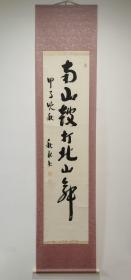 南山鼓打北山舞
甲子晚秋